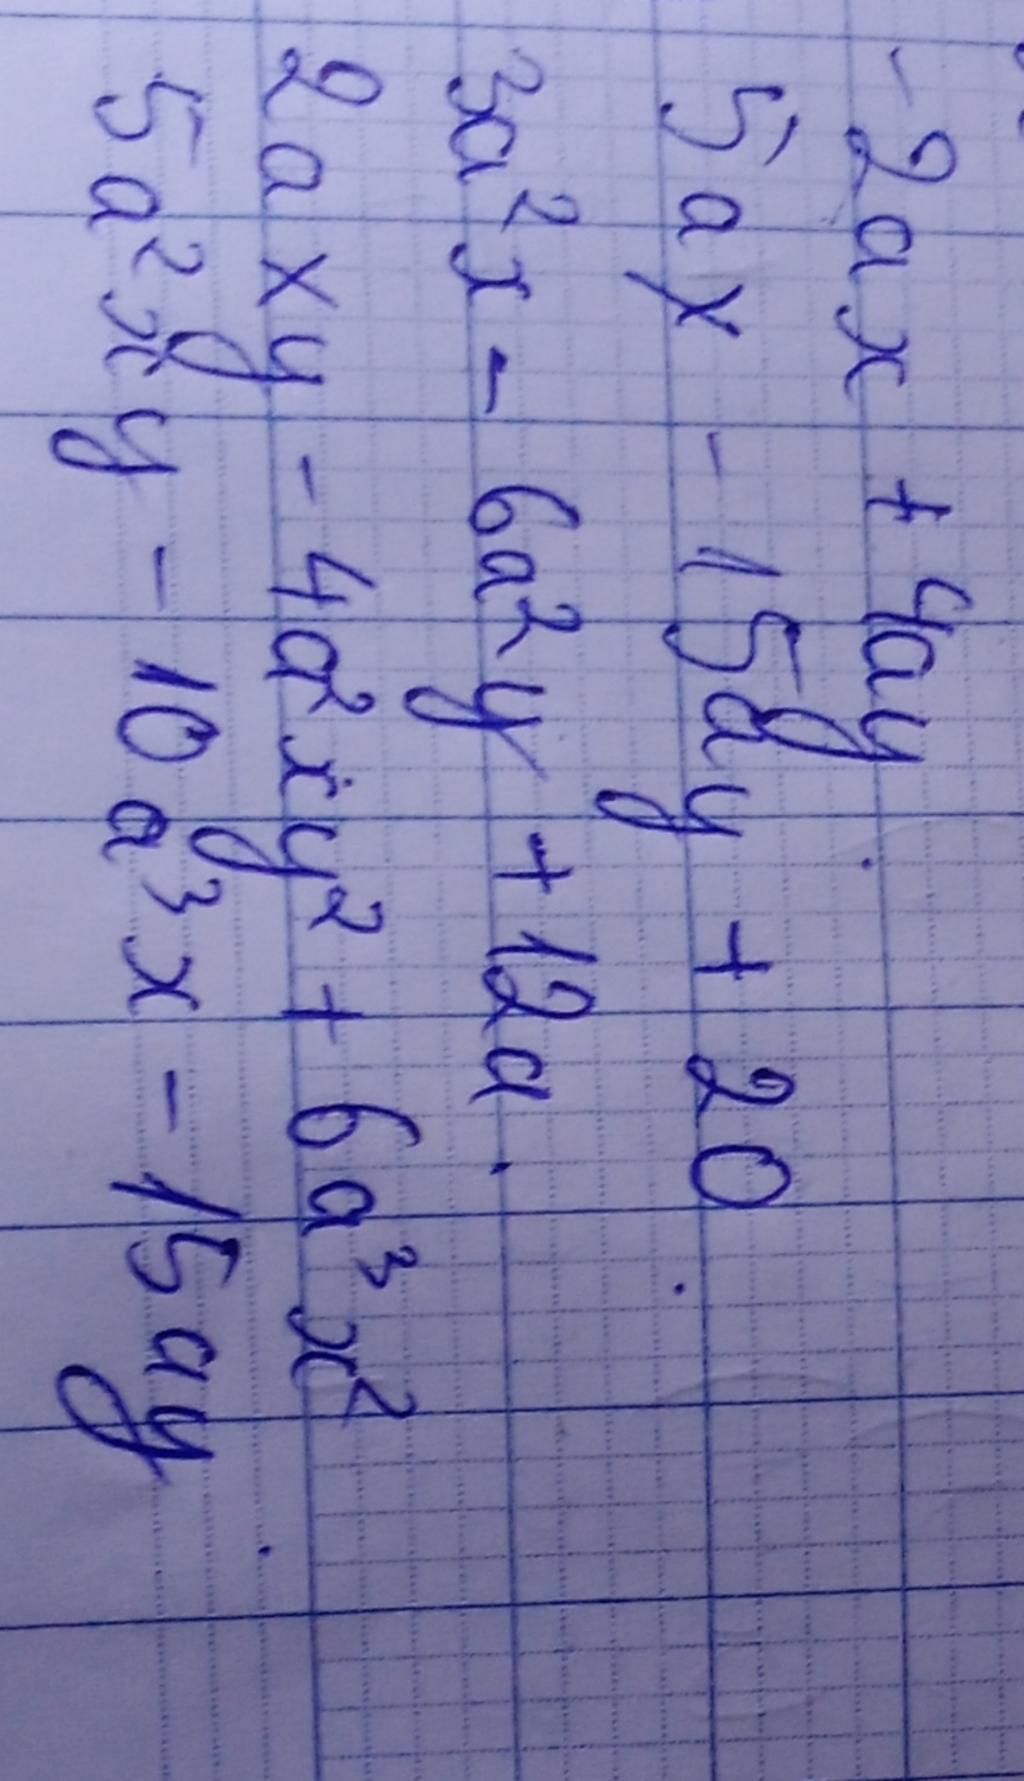 -2ax + 4ay.
5ax - 15ay + 20.
3a²x - 6a²y + 12a.
2axy - 4a²xy² + 6a³x²
5a²xy - 10a³x - 15ay.